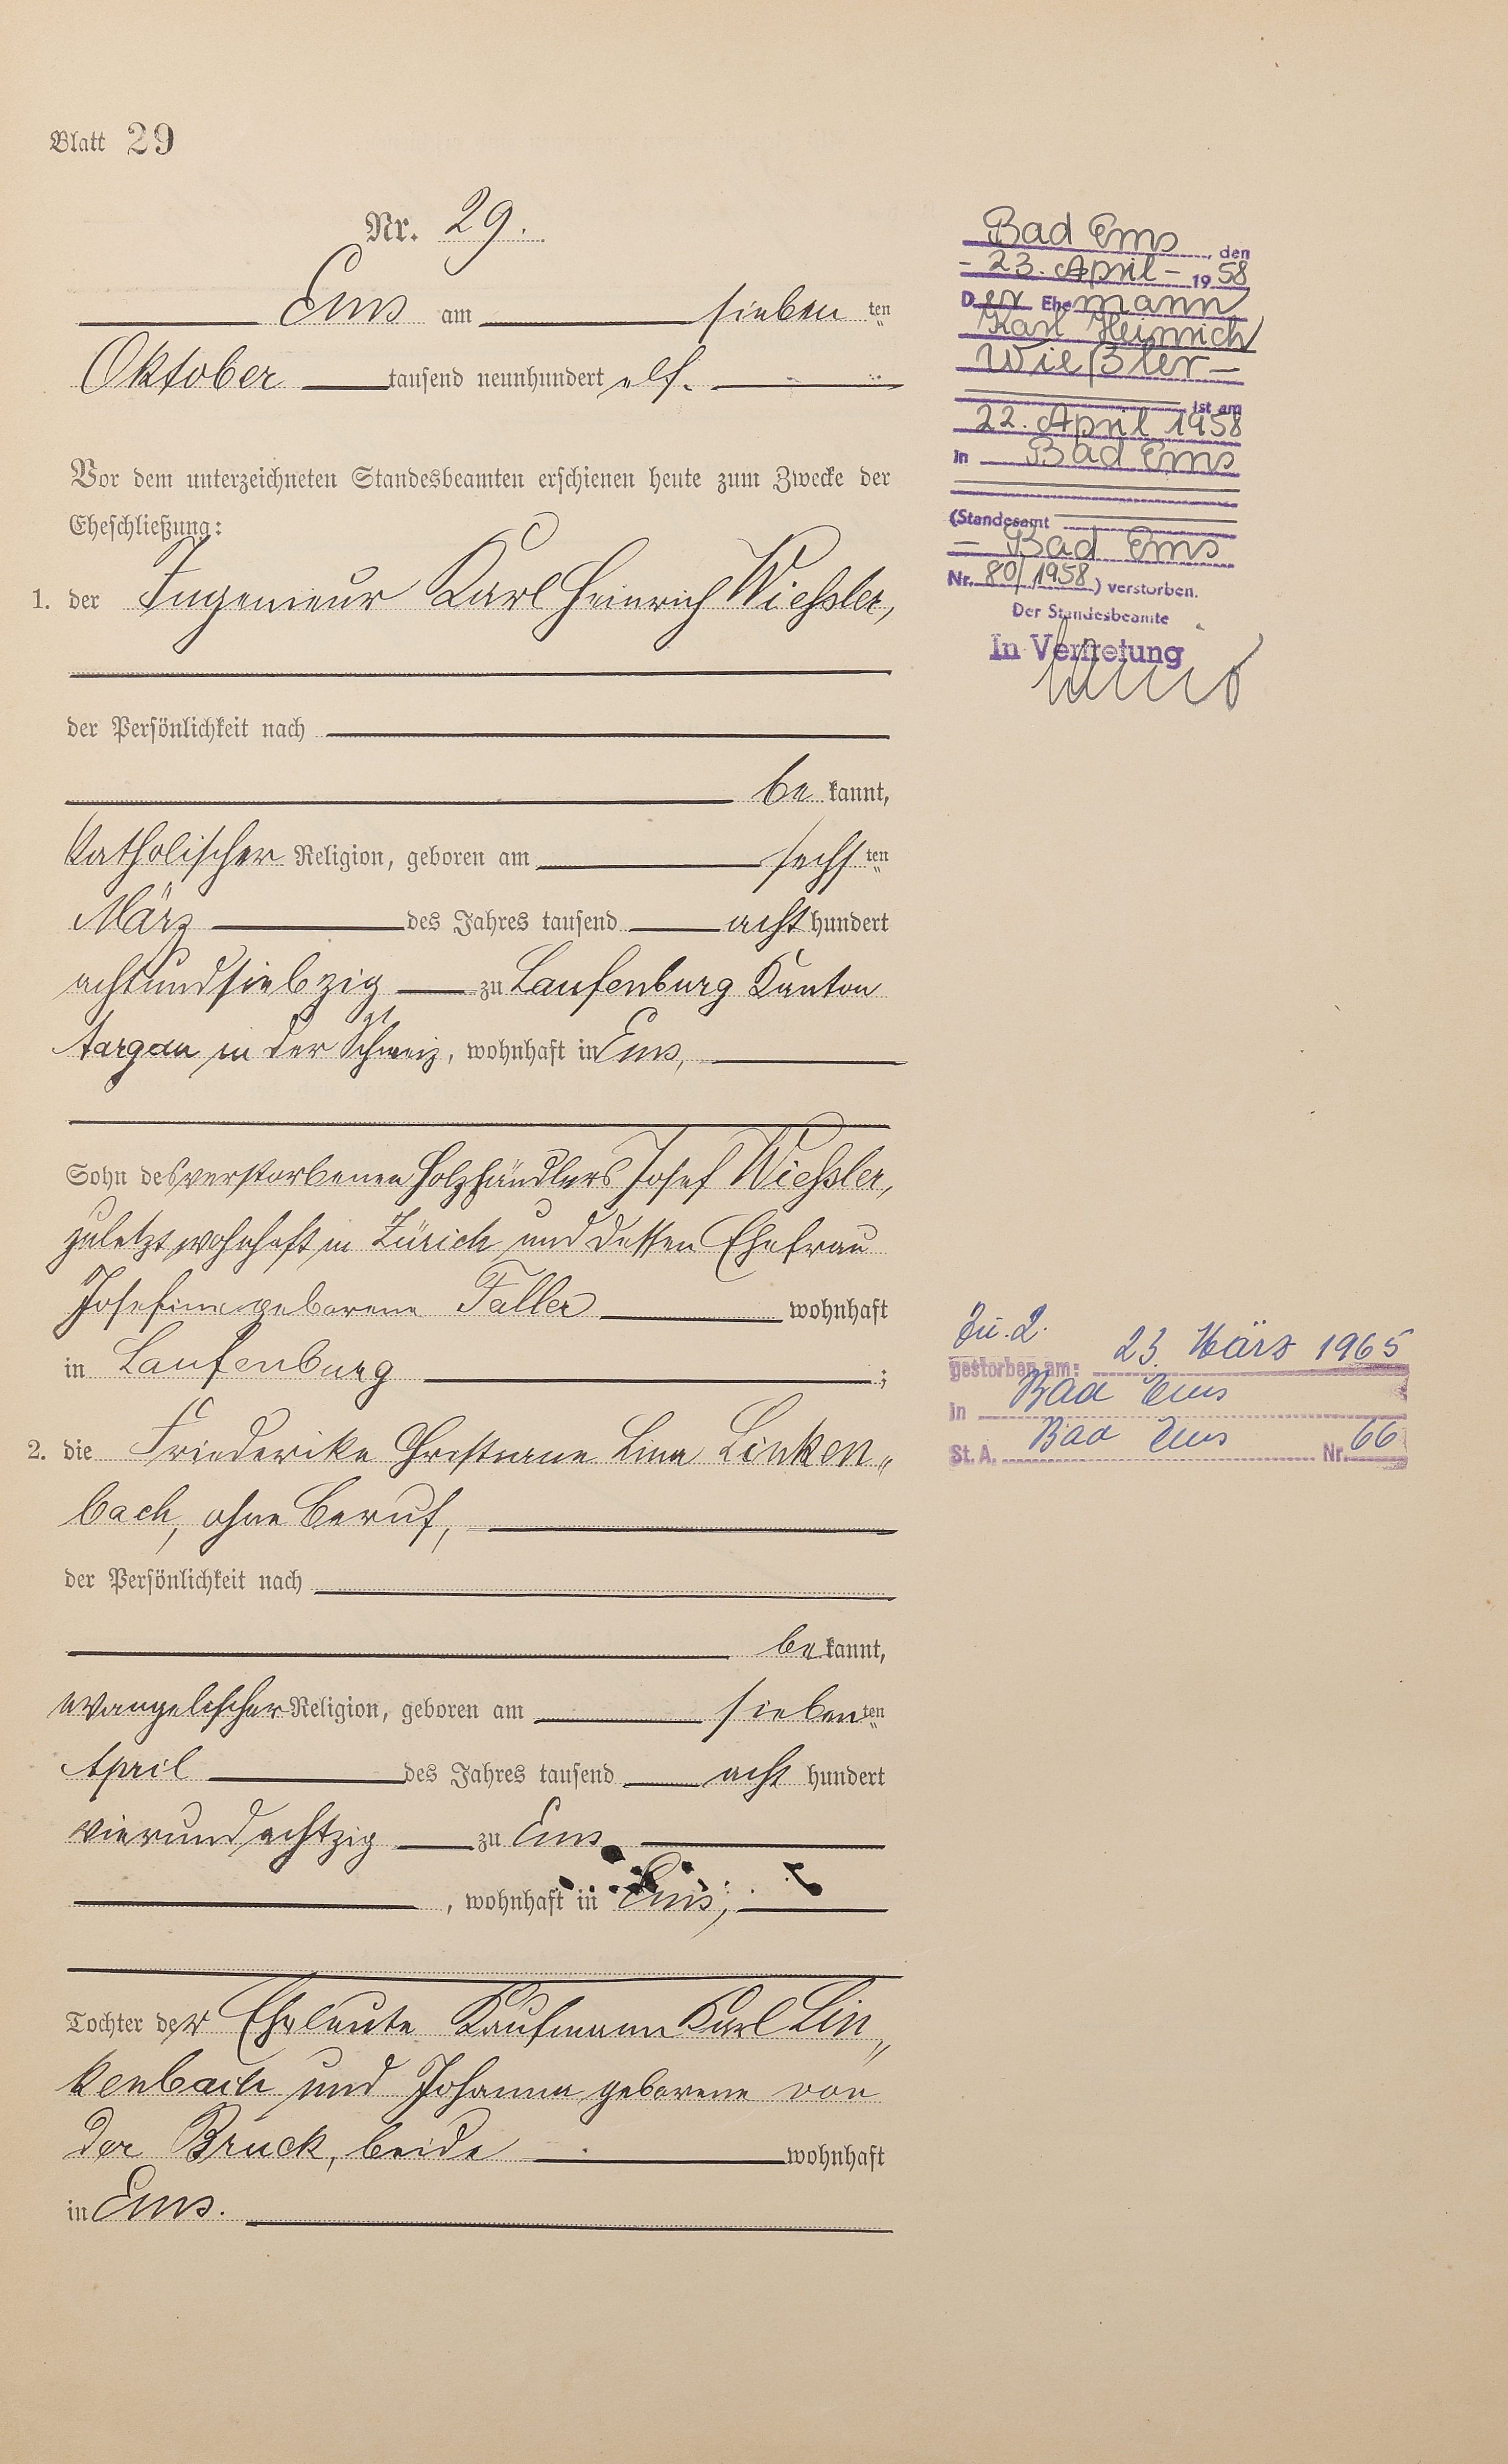 Blatt 29
Nr. 29.
Ems am sieben ten
Oktober tausend neunhundert elf.
Vor dem unterzeichneten Standesbeamten erschienen heute zum Zwecke der
Eheschließung:
1. der Ingenieur Karl Heinrich Wießler,
der Persönlichkeit nach
be kannt,
katholischer Religion, geboren am sechs ten
März des Jahres tausend acht hundert
achtundsiebzig zu Laufenburg Kanton
Aargau in der Schweiz, wohnhaft in Ems,
Sohn des verstorbenen Holzhändlers Josef Wießler,
zuletzt wohnhaft in Zürich und dessen Ehefrau
Josefine geborene Faller wohnhaft
in Laufenburg ;
2. die Friederike Christiane Lina Linken„
bach, ohne Beruf,
der Persönlichkeit nach
be kannt,
evangelischer Religion, geboren am sieben ten
April des Jahres tausend acht hundert
vierundachtzig zu Ems
, wohnhaft in Ems;
Tochter der Eheleute Kaufmann Karl Lin„
kenbach und Johanna geborene von
der Bruck, beide wohnhaft
in Ems.
Bad Ems, den
- 23. April - 1958
Der Ehemann
Karl Heinrich
Wießler -
ist am
22. April 1958
in Bad Ems
(Standesamt
- Bad Ems
Nr. 80/1958) verstorben.
Der Standesbeamte
In Vertretung
Zu. 2.
gestorben am: 23. März 1965
in Bad Ems
St. A. Bad Ems Nr. 66